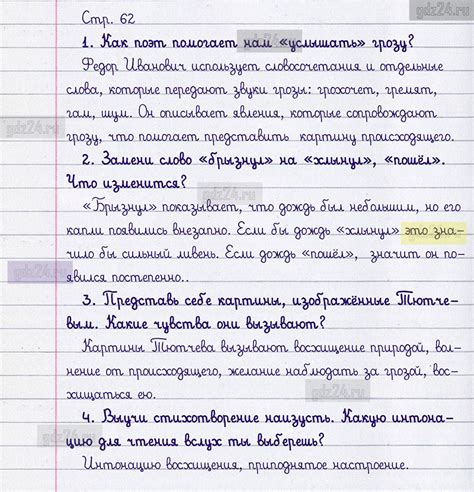 gdz24.ru
Стр. 62
1. Как поэт помогает нам «услышать» грозу?
Федор Иванович использует словосочетания и отдельные
слова, которые передают звуки грозы: грохочет, гремят,
гам, шум. Он описывает явления, которые сопровождают
gdz24.ru
грозу, что помогает представить картину происходящего.
2. Замени слово «брызнул» на «хлынул», «пошёл».
Что изменится?
gdz24.ru
«Брызнул» показывает, что дождь был небольшим, но его
капли появились внезапно. Если бы дождь «хлынул» это зна-
чило бы сильный ливень. Если дождь «пошёл», значит он по-
gdz24.ru
явился постепенно..
3. Представь себе картины, изображённые Тютче-
вым. Какие чувства они вызывают?
Картины Тютчева вызывают восхищение природой, вол-
нение от происходящего, желание наблюдать за грозой, вос-
gdz24.ru
хищаться ею.
4. Выучи стихотворение наизусть. Какую интона-
gdz24.ru
цию для чтения вслух ты выберешь?
Интонацию восхищения, приподнятое настроение.